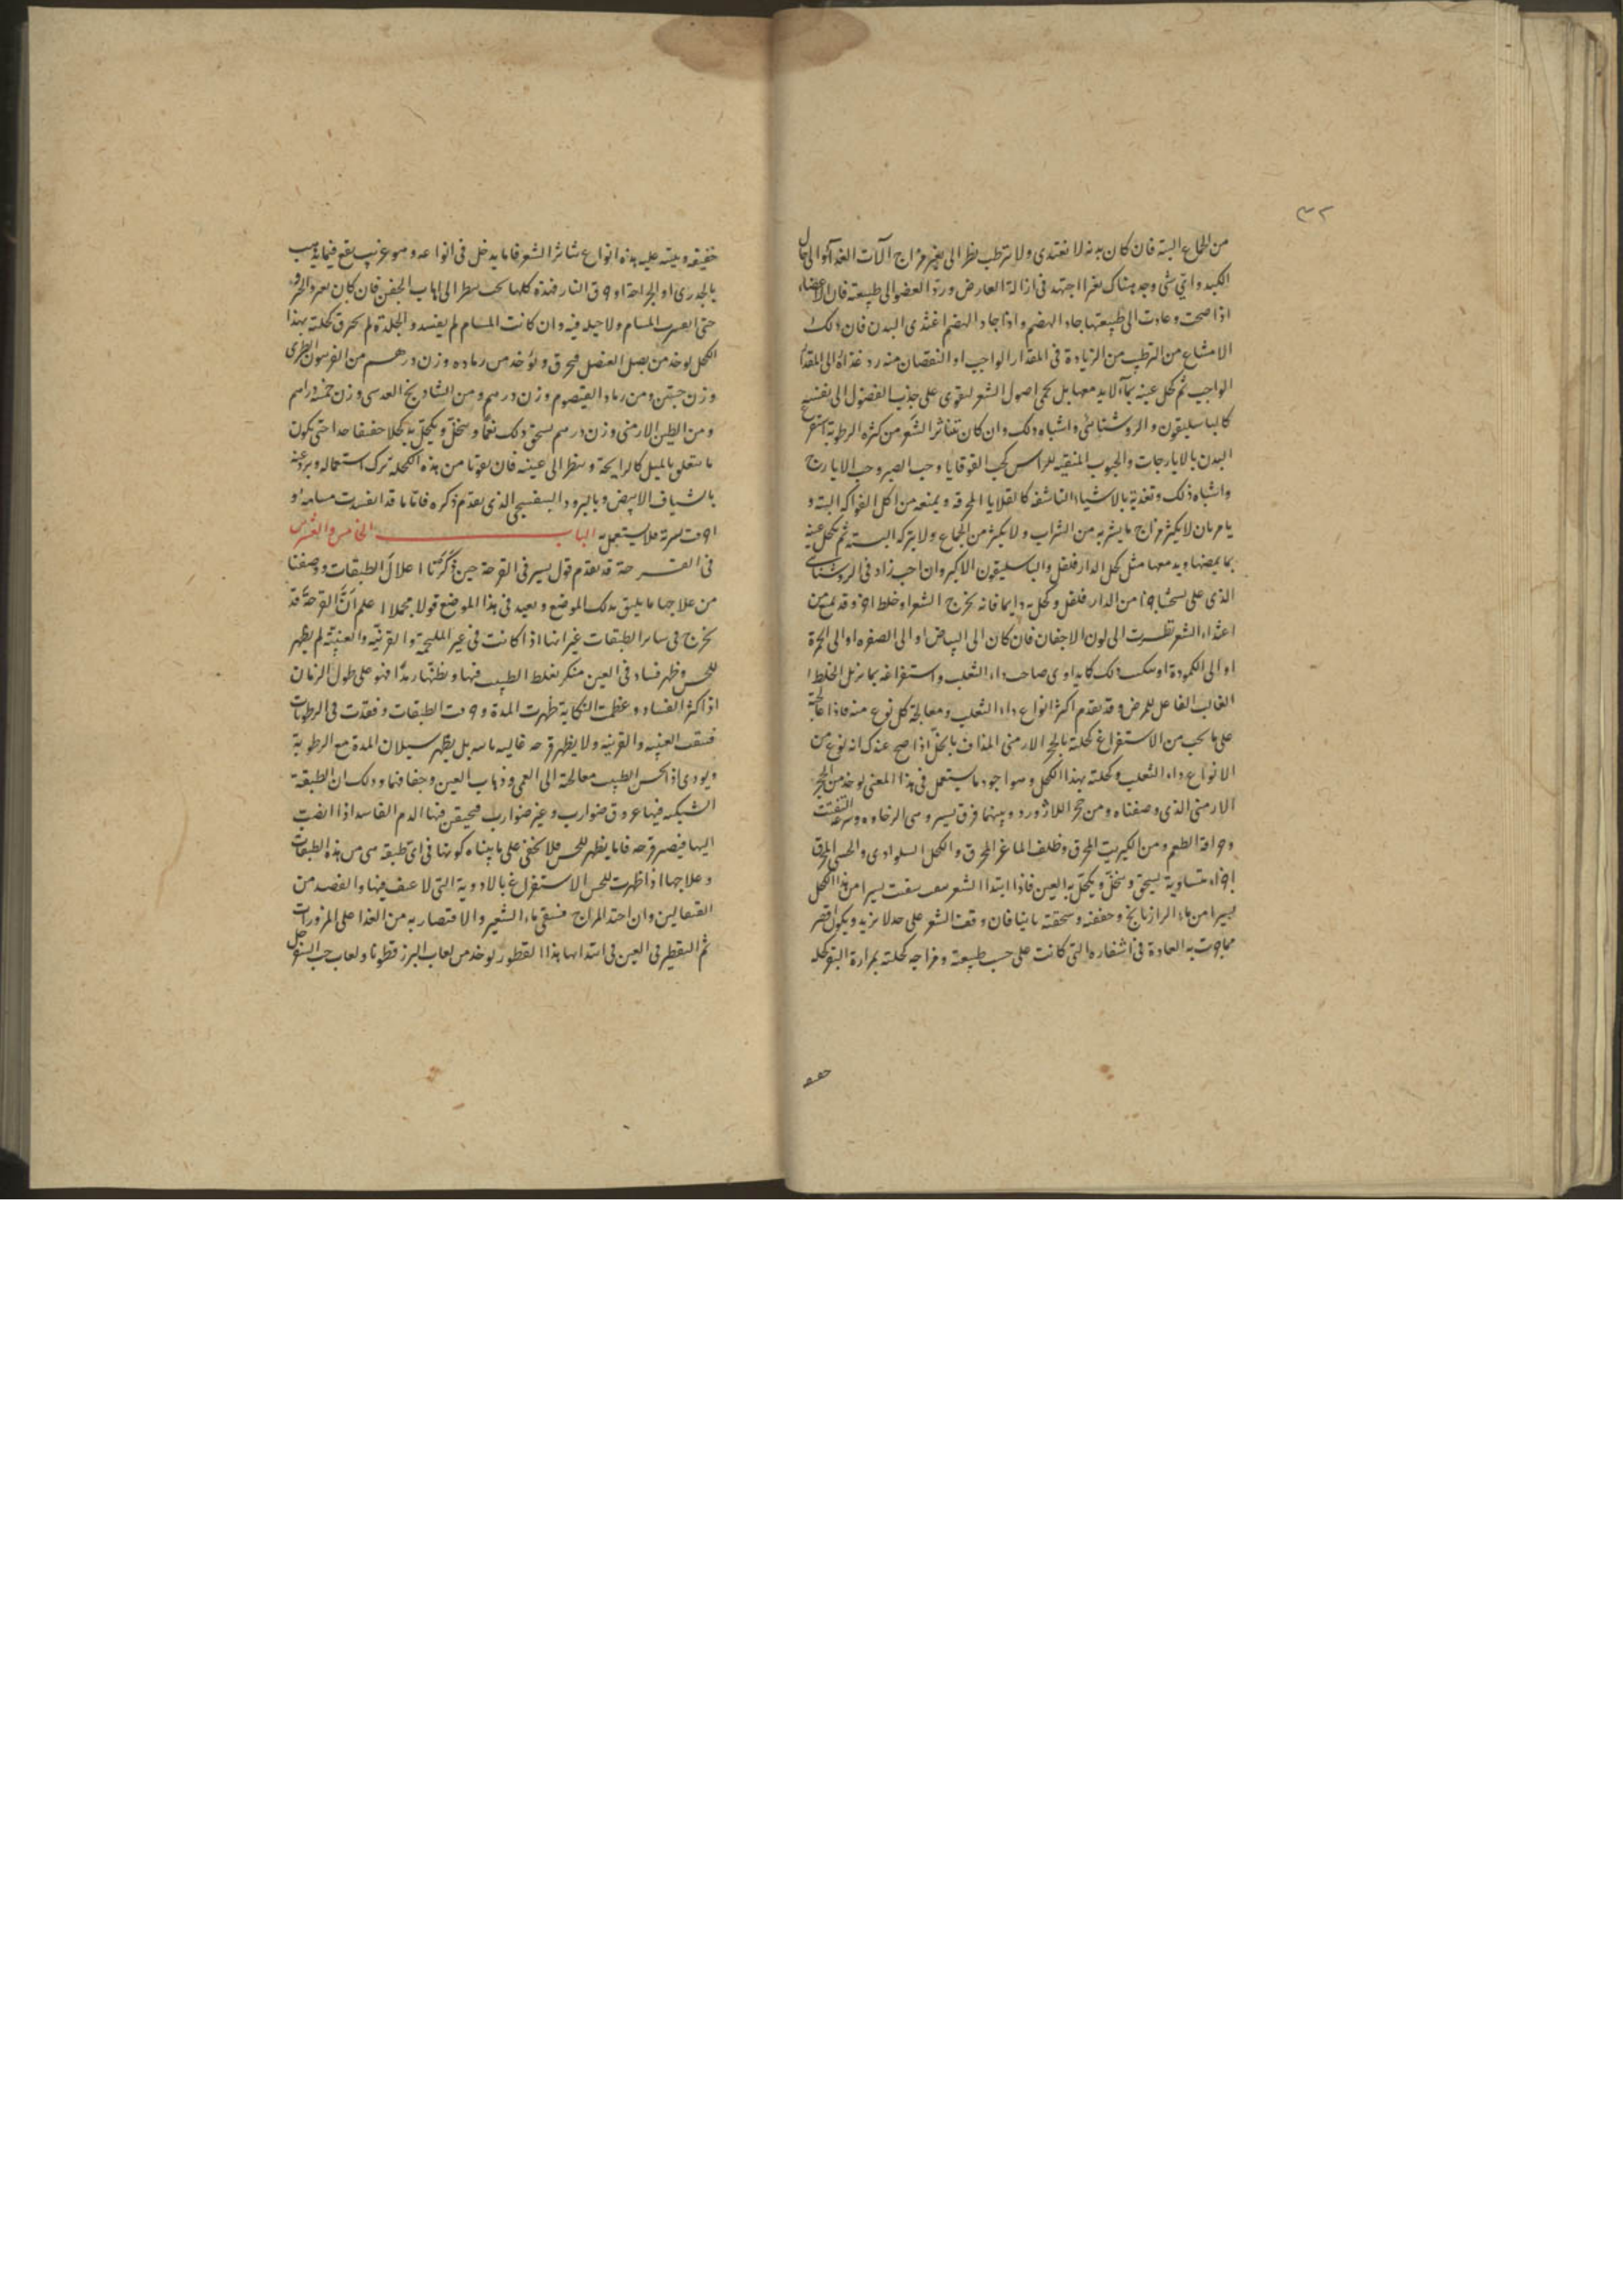 ٣٢
من الجماع البتة فان كان بدنه لا يغتدى ولا يترطب نظر الى تغير مزاج آلات الغذآء والى حال
الكبد واى شى وجد هناك تغيرا اجتهد فى ازالة العارض ورد العضو الى طبيعته فان الاعضاء
اذا صحت وعادت الى طبيعتها جاد الهضم واذا جاد الهضم اغتذى البدن فان ذلك
الامتناع من الترطب من الزيادة فى المقدار الواجب او النقصان منه رد غذاه الى المقدار
الواجب ثم كحل عينه بمآء لا يدمعها بل يحمى اصول الشعر ليقوى على جذب الفضول الى نفسه
كالباسليقون والروشنائى واشباه ذلك وان كان تناثر الشعر من كثرة الرطوبة استفرغ
البدن بالايارجات والحبوب المنقية للراس كحب القوقايا وحب الصبر وحب الايارج
واشباه ذلك وتغذية بالاشياء الناشفة كالقلايا المحرقة ويمنعه من اكل الفواكه البتة و
يامر بان لا يكثر مزاج ما يشربه من الشراب ولا يكثر من الجماع ولا يتركه البسته ثم يكحل عينه
بما يمضها ويدمعها مثل كحل الدارفلفل والباسليقون الاكبر وان احب زاد فى الروشناى
الذى على نسختنا جزا من الدارفلفل وكحل به دايما فانه يخرج الشعر او خلط اخر وقد يمنع من
اغتذاء الشعر نظرت الى لون الاجفان فان كان الى البياض او الى الصفره او الى الحمرة
او الى الكمودة او سكب ذلك كما يداوى صاحب داء الثعلب واستفراغه بما يزيل الخلط ا
الغالب الفاعل للمرض وقد تقدم اكثر انواع داء الثعلب ومعالجة كل نوع منه فاذا عالجته
على ما يجب من الاستفراغ كحلته بالحجر الارمنى المذاف بالخل اذا صح عندك انه نوع من
الانواع داء الثعلب وكحلته بهذا الكحل وهو اجود ما يستعمل فى هذا المعنى يوخذ من الحجر
الارمنى الذى وصفناه ومن حجر اللازورد وبينهما فرق يسير وهى الرخاوه وسرعة التفتت
وحرافة الطعم ومن الكبريت المحرق وظلف الماعز المحرق والكحل السلوادى والحسى المحرق
اجزاء متساوية يسحق وينخل ويكحل به العين فاذا ابتدا الشعر سقيت يسيرا من هذا الكحل
يسيرا من ماء الرازيانج وجففته وسحقته ثانيا فان وقعت الشعر على حد لا يزيد ويكون اقصر
مما جرت به العادة فى اشفاره التى كانت على حسب طبيعته ومزاجه كحلته بمرارة البقر كحلا
خفيفا
خفيفة وبيته عليه بهذه انواع تناثر الشعر فاما ما يدخل فى انواعه وهو غريب يقع فيما يذهب
بالجدرى او الجراحة او حرق النار فهذه كلها يجب ينظر الى اهاب الجفن فان كان
حتى انسدت المسام ولا حيلة فيه وان كانت المسام لم يفسد والجلدة لم يحرق كحلته بهذا
الكحل يوخذ من بصل العنصل فيحرق ويؤخذ من رماده وزن درهم من الفرسون الطرى
وزن حبتين ومن رماد القيصوم وزن درهم ومن الشادنج العدسى وزن خمسة دراهم
ومن الطين الارمنى وزن درهم يسحق ذلك نعمًا وينخل ويكحل به كحلا خفيفا جدا حتى يكون
ما يتعلق بالميل كالرايحة وينظر الى عينيه فان تقوتا من هذه الكحله ترك استعماله وبرد عينه
بالشياف الابيض وبالبرود البنفسجى الذى تقدم ذكره فاما ما قد انفسدت مسامه او
احرقت بشرته فلا يستعمل به الباب الخامس والعشرين
فى القرحة قد تقدم قول يسير فى القرحة حين ذكرنا اعلال الطبقات ووصفنا
من علاجها ما يليق بذلك الموضع ونعيد فى هذا الموضع قولا مجملا اعلم انّ القرحة قد
تخرج فى ساير الطبقات غير انها اذا كانت فى غير الملتحمة والقرنية والعنبية لم يظهر
للحس وظهر فساد فى العين منكر يغلط الطبيب فيها ويظنها رمدًا فهو على طول الزمان
اذا كثر الفساد وعظمت النكاية ظهرت المدة وخرقت الطبقات ونفذت فى الرطوبات
فتنقب العنبيه والقرنيه ولا يظهر قرحه بل يظهر سيلان المدة مع الرطوبة
ويودى اذا لم يحسن الطبيب معالجته الى العمى وذهاب العين وجفافها وذلك ان الطبقة
الشبكيه فيها عروق ضوارب وغير ضوارب فيحتقن فيها الدم الفاسد اذا انصب
اليها فيصير قرحه فاما ما يظهر للحس فلا يخفى على ما بيناه كونها فى اى طبقة هى من هذه الطبقات
وعلاجها اذا ظهرت للحس الاستفراغ بالادوية التى لا عنف فيها والفصد من
القيفالين وان احتد المزاج فسقى ماء الشعير والاقتصار به من الغذا على المزورات
ثم التقطير فى العين فى ابتدائها بهذا القطور يوخذ من لعاب البزر قطونا ولعاب حب السفرجل